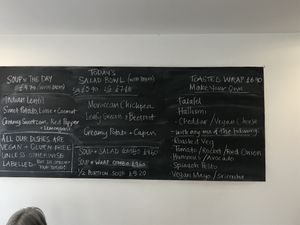 SOUP OF THE DAY
£4.90 (with bread)
Indian Lentil
Sweet Potato, Lime + Coconut
Creamy Sweetcorn, Red Pepper
+ Lemongrass
ALL OUR DISHES ARE
VEGAN + GLUTEN FREE
UNLESS OTHERWISE
LABELLED.
TODAY'S
SALAD BOWL (with bread)
Moroccan Chickpea
Leafy Greens + Beetroot
Creamy Potato + Capers
SOUP + SALAD COMBO £9.60
SOUP + WRAP COMBO £9.60
1/2 PORTION SOUP £3.20
TOASTED WRAP £6.90
Make Your Own
- Falafel
- Halloumi
- Cheddar / Vegan Cheese
- with any mix of the following:
- Roasted Veg
- Tomato / Rocket / Red Onion
- Hummous / Avocado
- Spinach Pesto
- Vegan Mayo / Sriracha